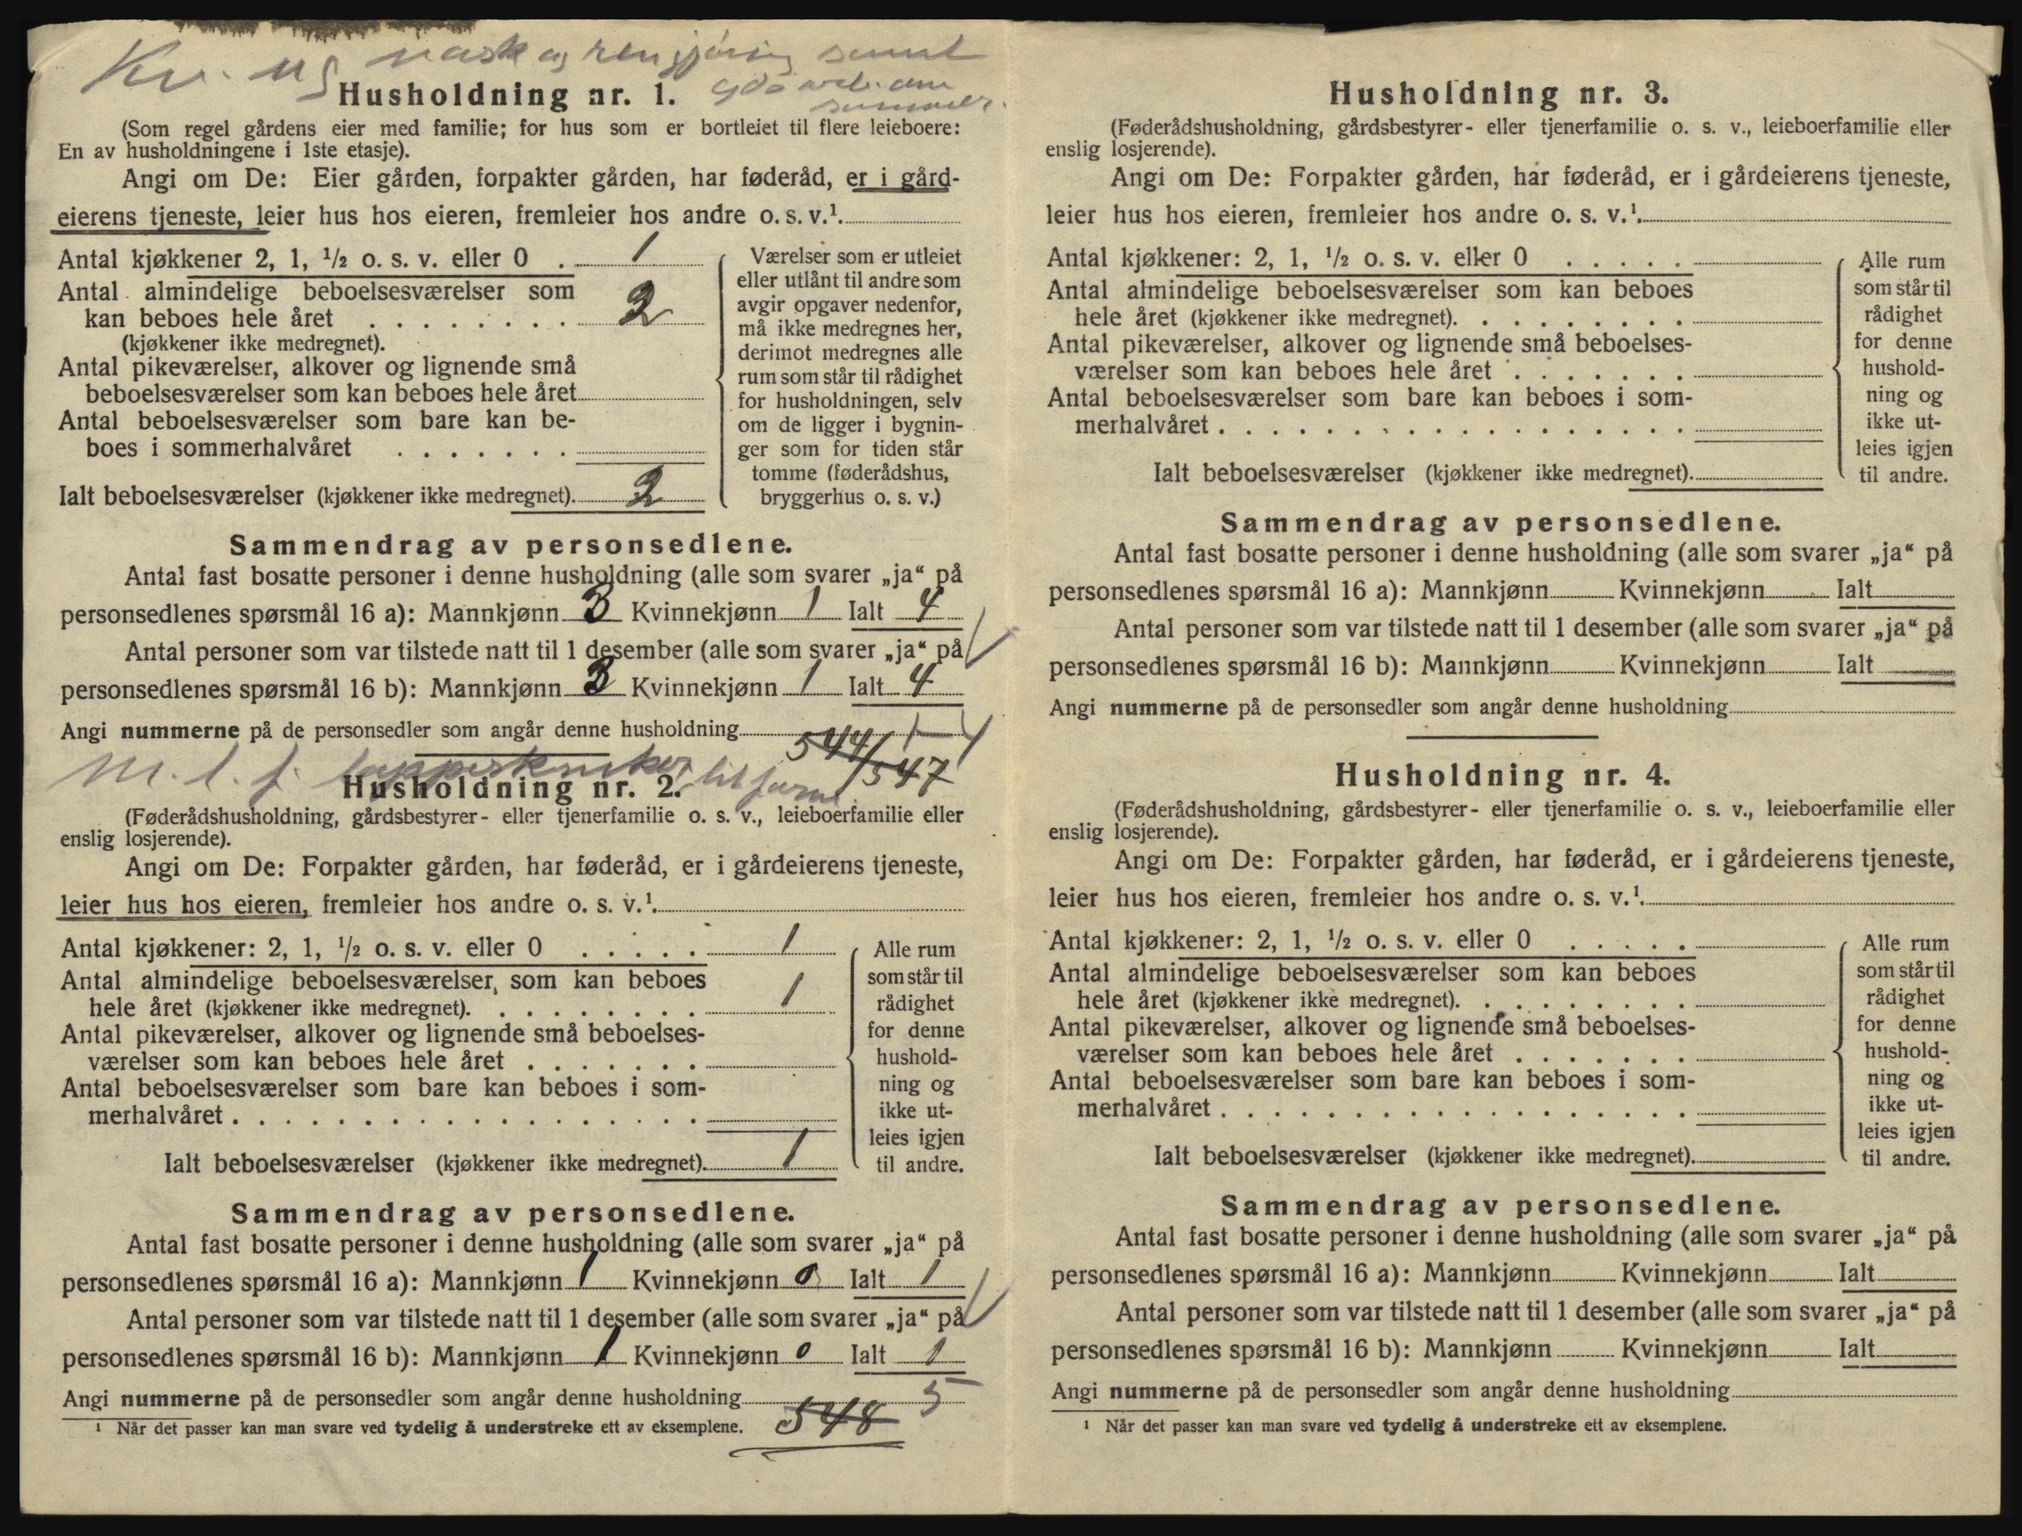 Kv. ug vask og rengjøring samt
Husholdning nr. 1.
(Som regel gårdens eier med familie; for hus som er bortleiet til flere leieboere:
En av husholdningene i 1ste etasje).
Angi om De: Eier gården, forpakter gården, har føderåd, er i gård-
eierens tjeneste, leier hus hos eieren, fremleier hos andre o. s. v.¹.
Antal kjøkkener 2, 1, ½ o. s. v. eller 0 . 1
Antal almindelige beboelsesværelser som
kan beboes hele året . . . . . . . . 2
(kjøkkener ikke medregnet).
Antal pikeværelser, alkover og lignende små
beboelsesværelser som kan beboes hele året
Antal beboelsesværelser som bare kan be-
boes i sommerhalvåret . . . . . . .
Ialt beboelsesværelser (kjøkkener ikke medregnet). 2
Værelser som er utleiet
eller utlånt til andre som
avgir opgaver nedenfor,
må ikke medregnes her,
derimot medregnes alle
rum som står til rådighet
for husholdningen, selv
om de ligger i bygnin-
ger som for tiden står
tomme (føderådshus,
bryggerhus o. s. v.)
Sammendrag av personsedlene.
Antal fast bosatte personer i denne husholdning (alle som svarer „ja“ på
personsedlenes spørsmål 16 a): Mannkjønn 3 Kvinnekjønn 1 Ialt 4
Antal personer som var tilstede natt til 1 desember (alle som svarer „ja“ på
personsedlenes spørsmål 16 b): Mannkjønn 3 Kvinnekjønn 1 Ialt 4
Angi nummerne på de personsedler som angår denne husholdning 1-4
544/547
M. l. f.
Husholdning nr. 2.
(Føderådshusholdning, gårdsbestyrer- eller tjenerfamilie o. s. v., leieboerfamilie eller
enslig losjerende).
Angi om De: Forpakter gården, har føderåd, er i gårdeierens tjeneste,
leier hus hos eieren, fremleier hos andre o. s. v.¹.
Antal kjøkkener: 2, 1, ½ o. s. v. eller 0 . . . . . 1
Antal almindelige beboelsesværelser, som kan beboes
hele året (kjøkkener ikke medregnet). . . . . . . . . 1
Antal pikeværelser, alkover og lignende små beboelses-
værelser som kan beboes hele året . . . . . . .
Antal beboelsesværelser som bare kan beboes i som-
merhalvåret . . . . . . . . . . . . . . . . . .
Ialt beboelsesværelser (kjøkkener ikke medregnet). 1
Alle rum
som står til
rådighet
for denne
hushold-
ning og
ikke ut-
leies igjen
til andre.
Sammendrag av personsedlene.
Antal fast bosatte personer i denne husholdning (alle som svarer „ja“ på
personsedlenes spørsmål 16 a): Mannkjønn 1 Kvinnekjønn 0 Ialt 1
Antal personer som var tilstede natt til 1 desember (alle som svarer „ja“ på
personsedlenes spørsmål 16 b): Mannkjønn 1 Kvinnekjønn 0 Ialt 1
Angi nummerne på de personsedler som angår denne husholdning 5
548
¹ Når det passer kan man svare ved tydelig å understreke ett av eksemplene.
Husholdning nr. 3.
(Føderådshusholdning, gårdsbestyrer- eller tjenerfamilie o. s. v., leieboerfamilie eller
enslig losjerende).
Angi om De: Forpakter gården, har føderåd, er i gårdeierens tjeneste,
leier hus hos eieren, fremleier hos andre o. s. v.¹.
Antal kjøkkener: 2, 1, ½ o. s. v. eller 0 . . . . .
Antal almindelige beboelsesværelser som kan beboes
hele året (kjøkkener ikke medregnet). . . . . . . . .
Antal pikeværelser, alkover og lignende små beboelses-
værelser som kan beboes hele året . . . . . . .
Antal beboelsesværelser som bare kan beboes i som-
merhalvåret . . . . . . . . . . . . . . . . . .
Ialt beboelsesværelser (kjøkkener ikke medregnet).
Alle rum
som står til
rådighet
for denne
hushold-
ning og
ikke ut-
leies igjen
til andre.
Sammendrag av personsedlene.
Antal fast bosatte personer i denne husholdning (alle som svarer „ja“ på
personsedlenes spørsmål 16 a): Mannkjønn Kvinnekjønn Ialt
Antal personer som var tilstede natt til 1 desember (alle som svarer „ja“ på
personsedlenes spørsmål 16 b): Mannkjønn Kvinnekjønn Ialt
Angi nummerne på de personsedler som angår denne husholdning
Husholdning nr. 4.
(Føderådshusholdning, gårdsbestyrer- eller tjenerfamilie o. s. v., leieboerfamilie eller
enslig losjerende).
Angi om De: Forpakter gården, har føderåd, er i gårdeierens tjeneste,
leier hus hos eieren, fremleier hos andre o. s. v.¹.
Antal kjøkkener: 2, 1, ½ o. s. v. eller 0 . . . . .
Antal almindelige beboelsesværelser som kan beboes
hele året (kjøkkener ikke medregnet). . . . . . . . .
Antal pikeværelser, alkover og lignende små beboelses-
værelser som kan beboes hele året . . . . . . .
Antal beboelsesværelser som bare kan beboes i som-
merhalvåret . . . . . . . . . . . . . . . . . .
Ialt beboelsesværelser (kjøkkener ikke medregnet).
Alle rum
som står til
rådighet
for denne
hushold-
ning og
ikke ut-
leies igjen
til andre.
Sammendrag av personsedlene.
Antal fast bosatte personer i denne husholdning (alle som svarer „ja“ på
personsedlenes spørsmål 16 a): Mannkjønn Kvinnekjønn Ialt
Antal personer som var tilstede natt til 1 desember (alle som svarer „ja“ på
personsedlenes spørsmål 16 b): Mannkjønn Kvinnekjønn Ialt
Angi nummerne på de personsedler som angår denne husholdning
¹ Når det passer kan man svare ved tydelig å understreke ett av eksemplene.